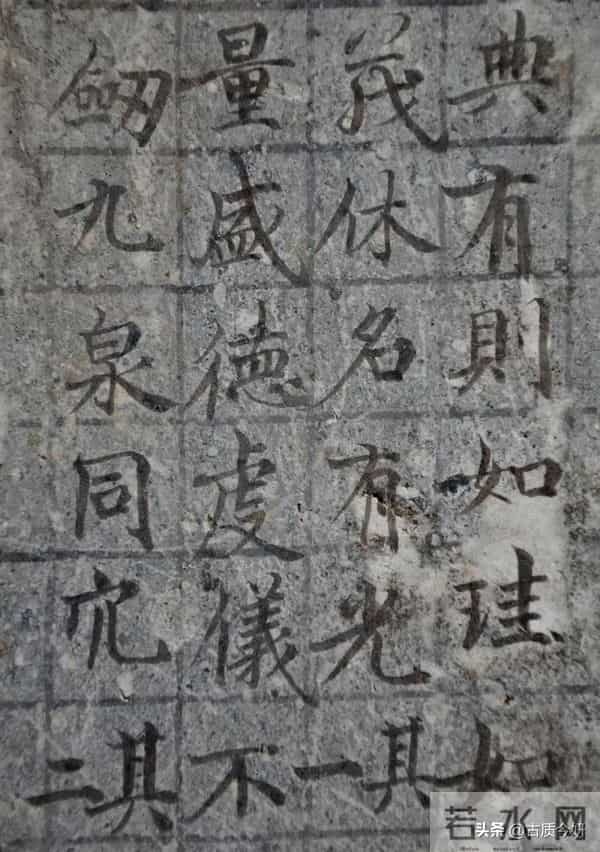 典有則如珪如
茂休名有光其一
量盛德虔儀不
劒九泉同穴其二
若水网
头条 @古质今妍